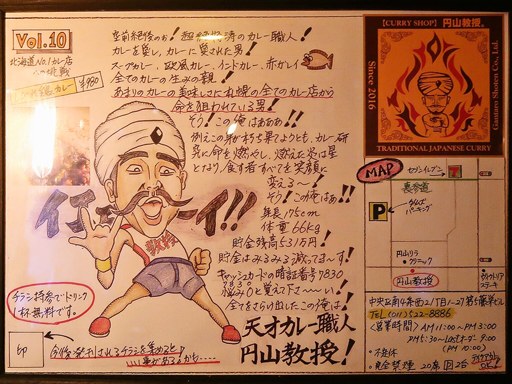 Vol.10
北海道No.1カレー店
への挑戦
カレー ¥980
空前絶後のぉ!超絶怒涛のカレー職人!
カレーを愛し、カレーに愛された男!
スープカレー、欧風カレー、インドカレー、赤カレイ
全てのカレーの生みの親!
あまりのカレーの美味しさに札幌の全てのカレー店から
命を狙われている男!
そう!この俺はぁぁぁ!!
例えこの身が朽ち果てようとも、カレー研
究に命を燃やし、燃えた炎は星
となり、食す者すべてを笑顔に
変える〜!
そう!この俺はぁ!!
身長175cm
体重66kg
貯金残高531万円!
貯金はみるみる減ってま〜す!
キャッシュカードの暗証番号7830
悩み0と覚えて下さ〜い!
全てをさらけ出したこの俺は!
天才カレー職人
円山教授!
イェーーイ!!
チラシ持参でドリンク
1杯無料です。
印
今後発刊されるチラシを集めると
事があるかも…
【CURRY SHOP】円山教授。
Since 2016
TRADITIONAL JAPANESE CURRY
MAP
セブンイレブン
7
裏参道
P
パーキング
円山リラ
クリニック
円山教授
ステーキ
中央区南4条西21丁目1-27第5藤栄ビル
TEL (011)522-8886
<営業時間> AM11:00〜PM3:00
PM5:30〜Lastオーダー9:00
(PM10:00)
・不定休
・完全禁煙 20席